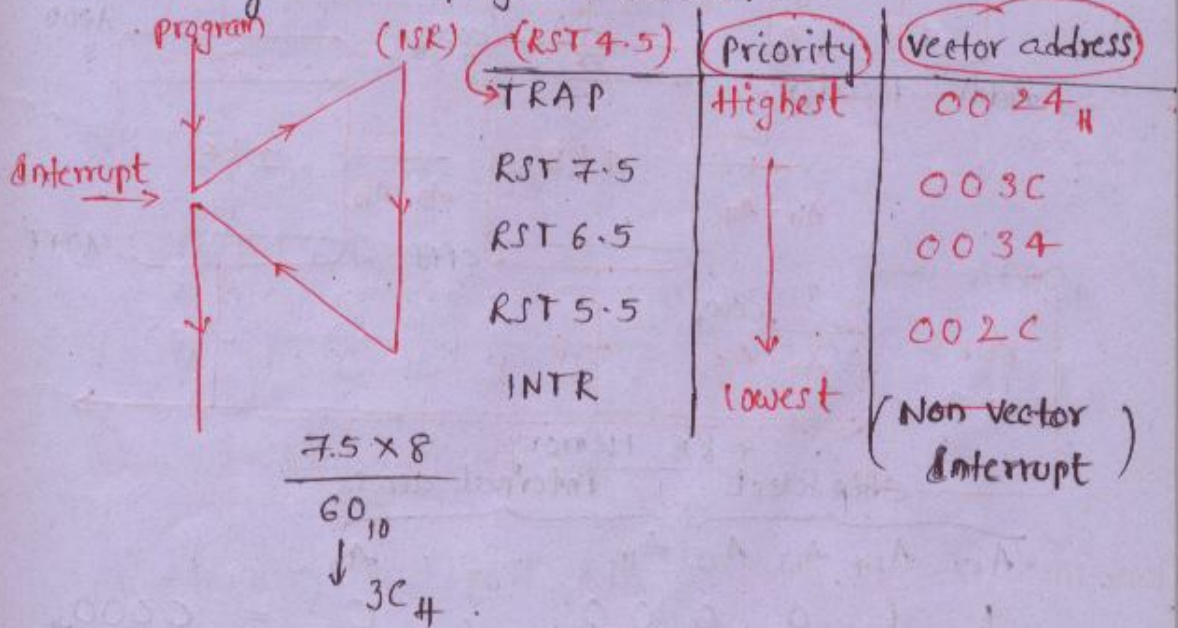 program (ISR) (RST 4.5) Priority Vector address
TRAP Highest 0024H
Interrupt RST 7.5 003C
RST 6.5 0034
RST 5.5 002C
INTR lowest (Non Vector Interrupt)
7.5 × 8
60₁₀
↓ 3C H